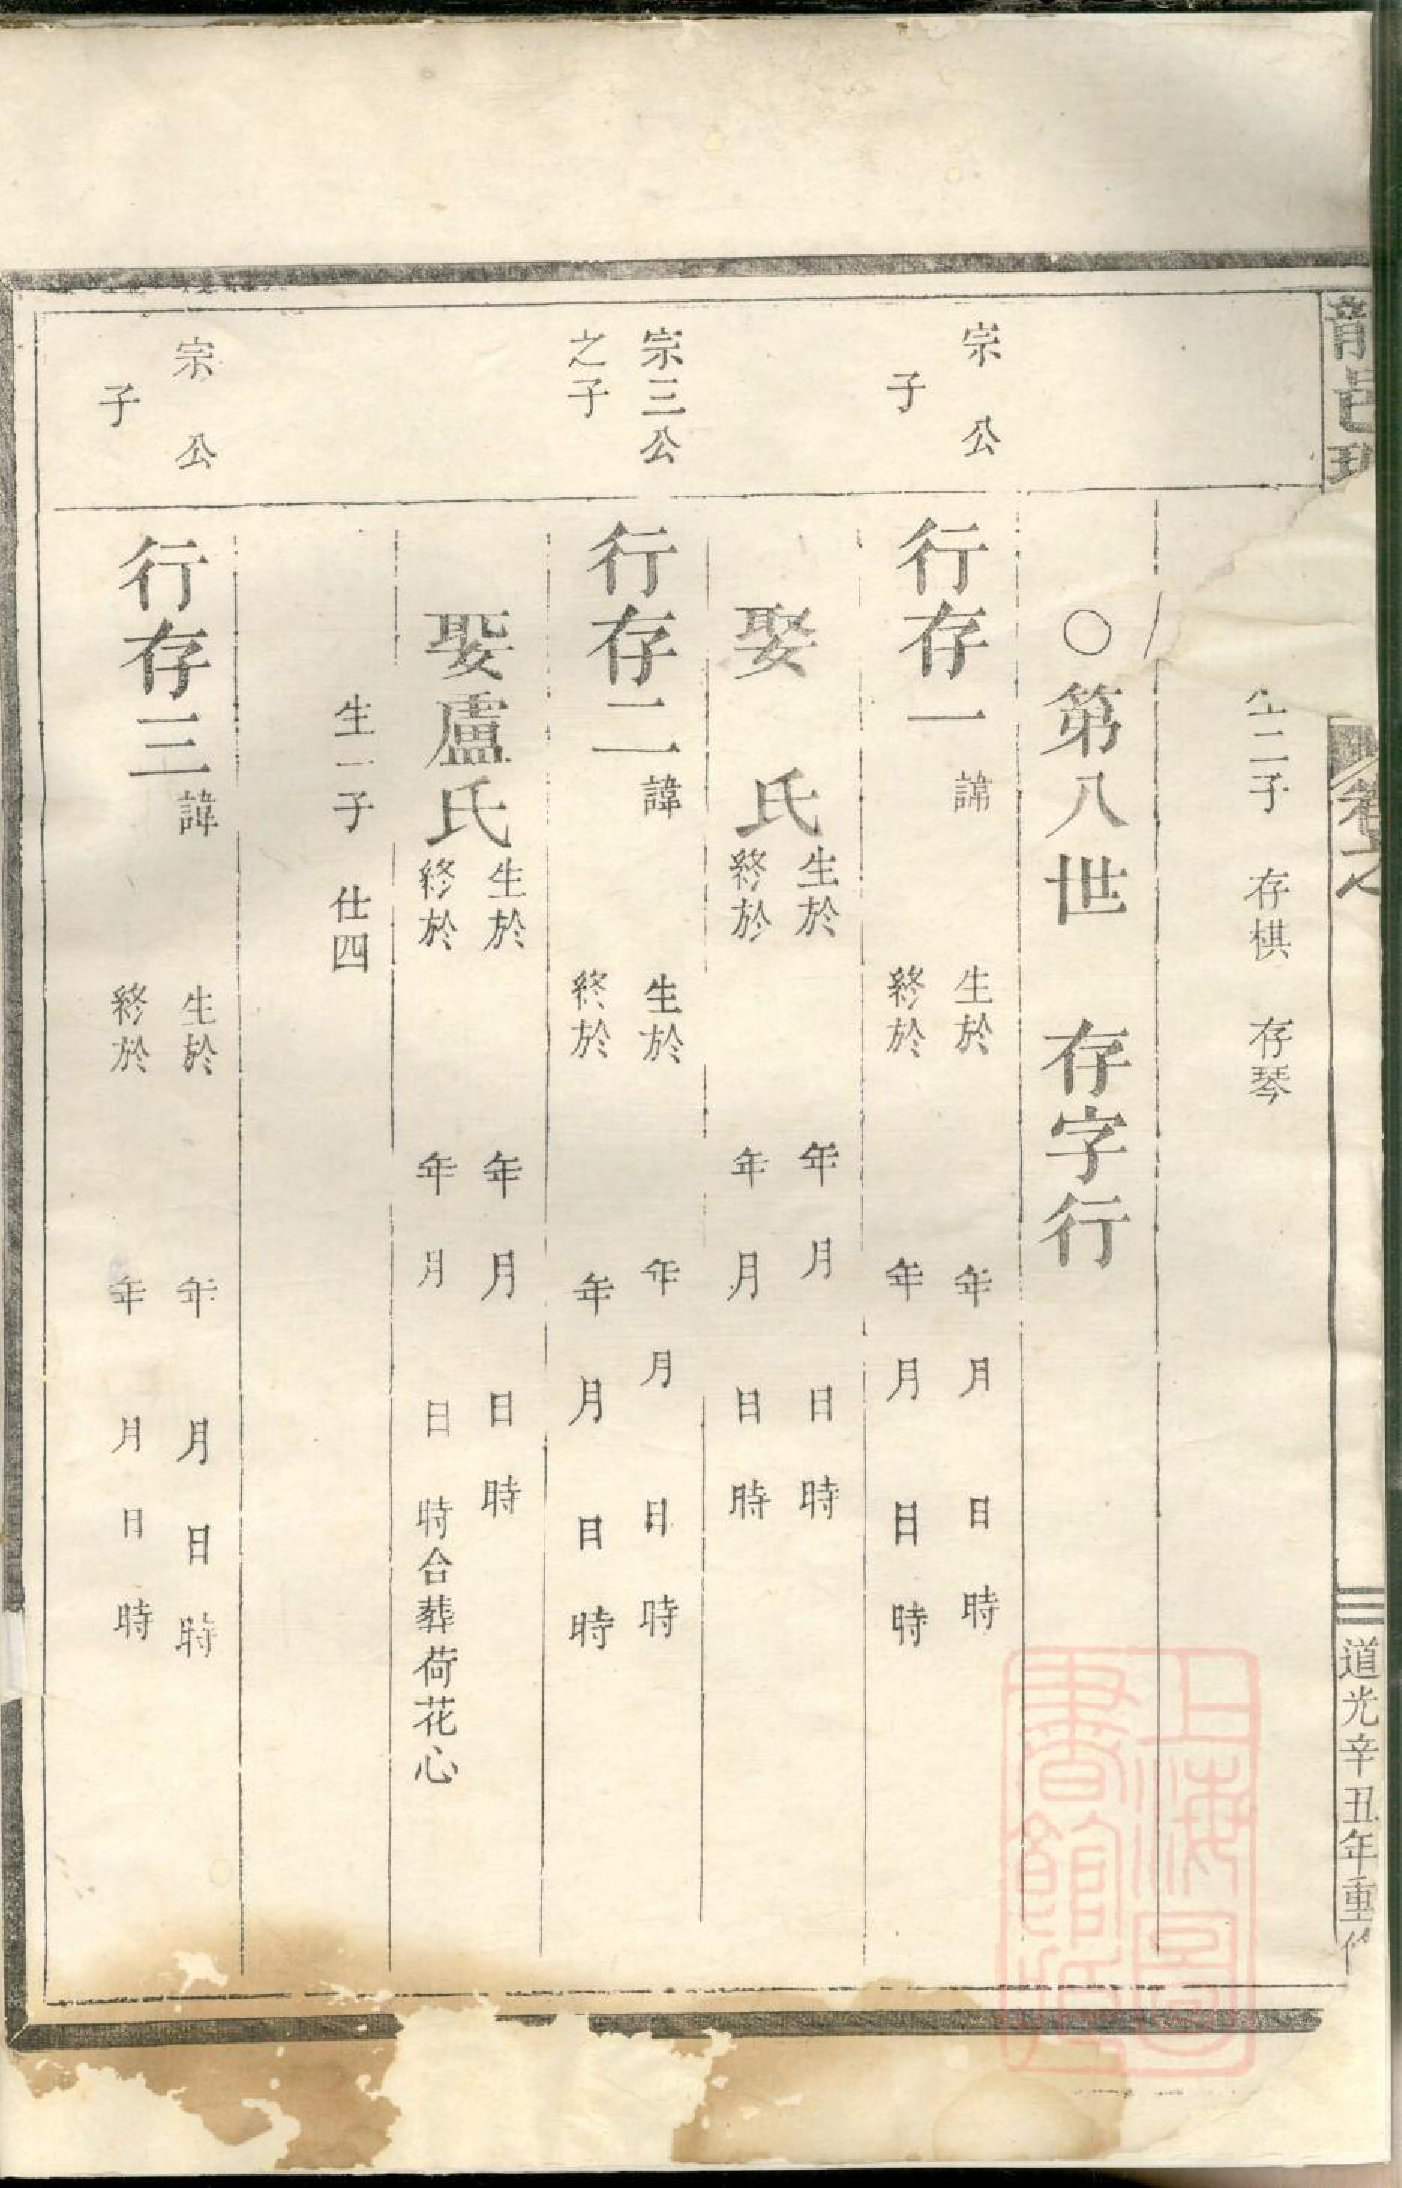 龍邑
卷之
道光辛丑年重修
生二子 存棋 存琴
○第八世 存字行
宗 公
子
行存一 諱
生於 年 月 日 時
終於 年 月 日 時
娶 氏
生於 年 月 日 時
終於 年 月 日 時
宗三公
之子
行存二 諱
生於 年 月 日 時
終於 年 月 日 時
娶盧氏
生於 年 月 日 時
終於 年 月 日 時合葬荷花心
生一子 仕四
宗 公
子
行存三 諱
生於 年 月 日 時
終於 年 月 日 時
上海圖
書館藏